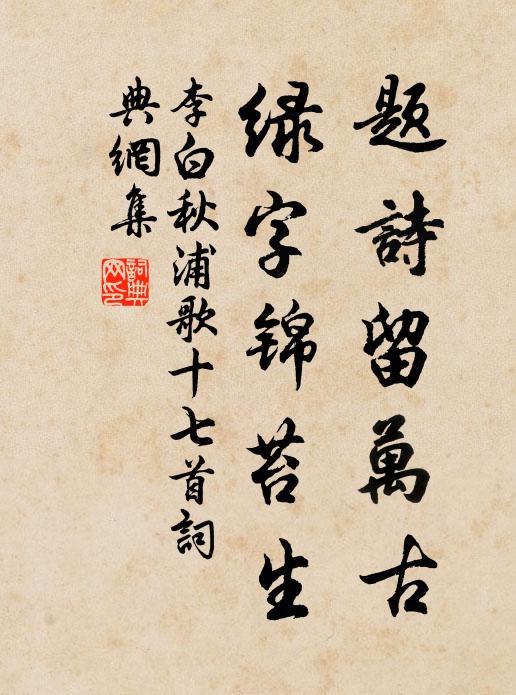 題詩留萬古
綠字錦苔生
李白秋浦歌十七首詞
典網集
詞典
网印